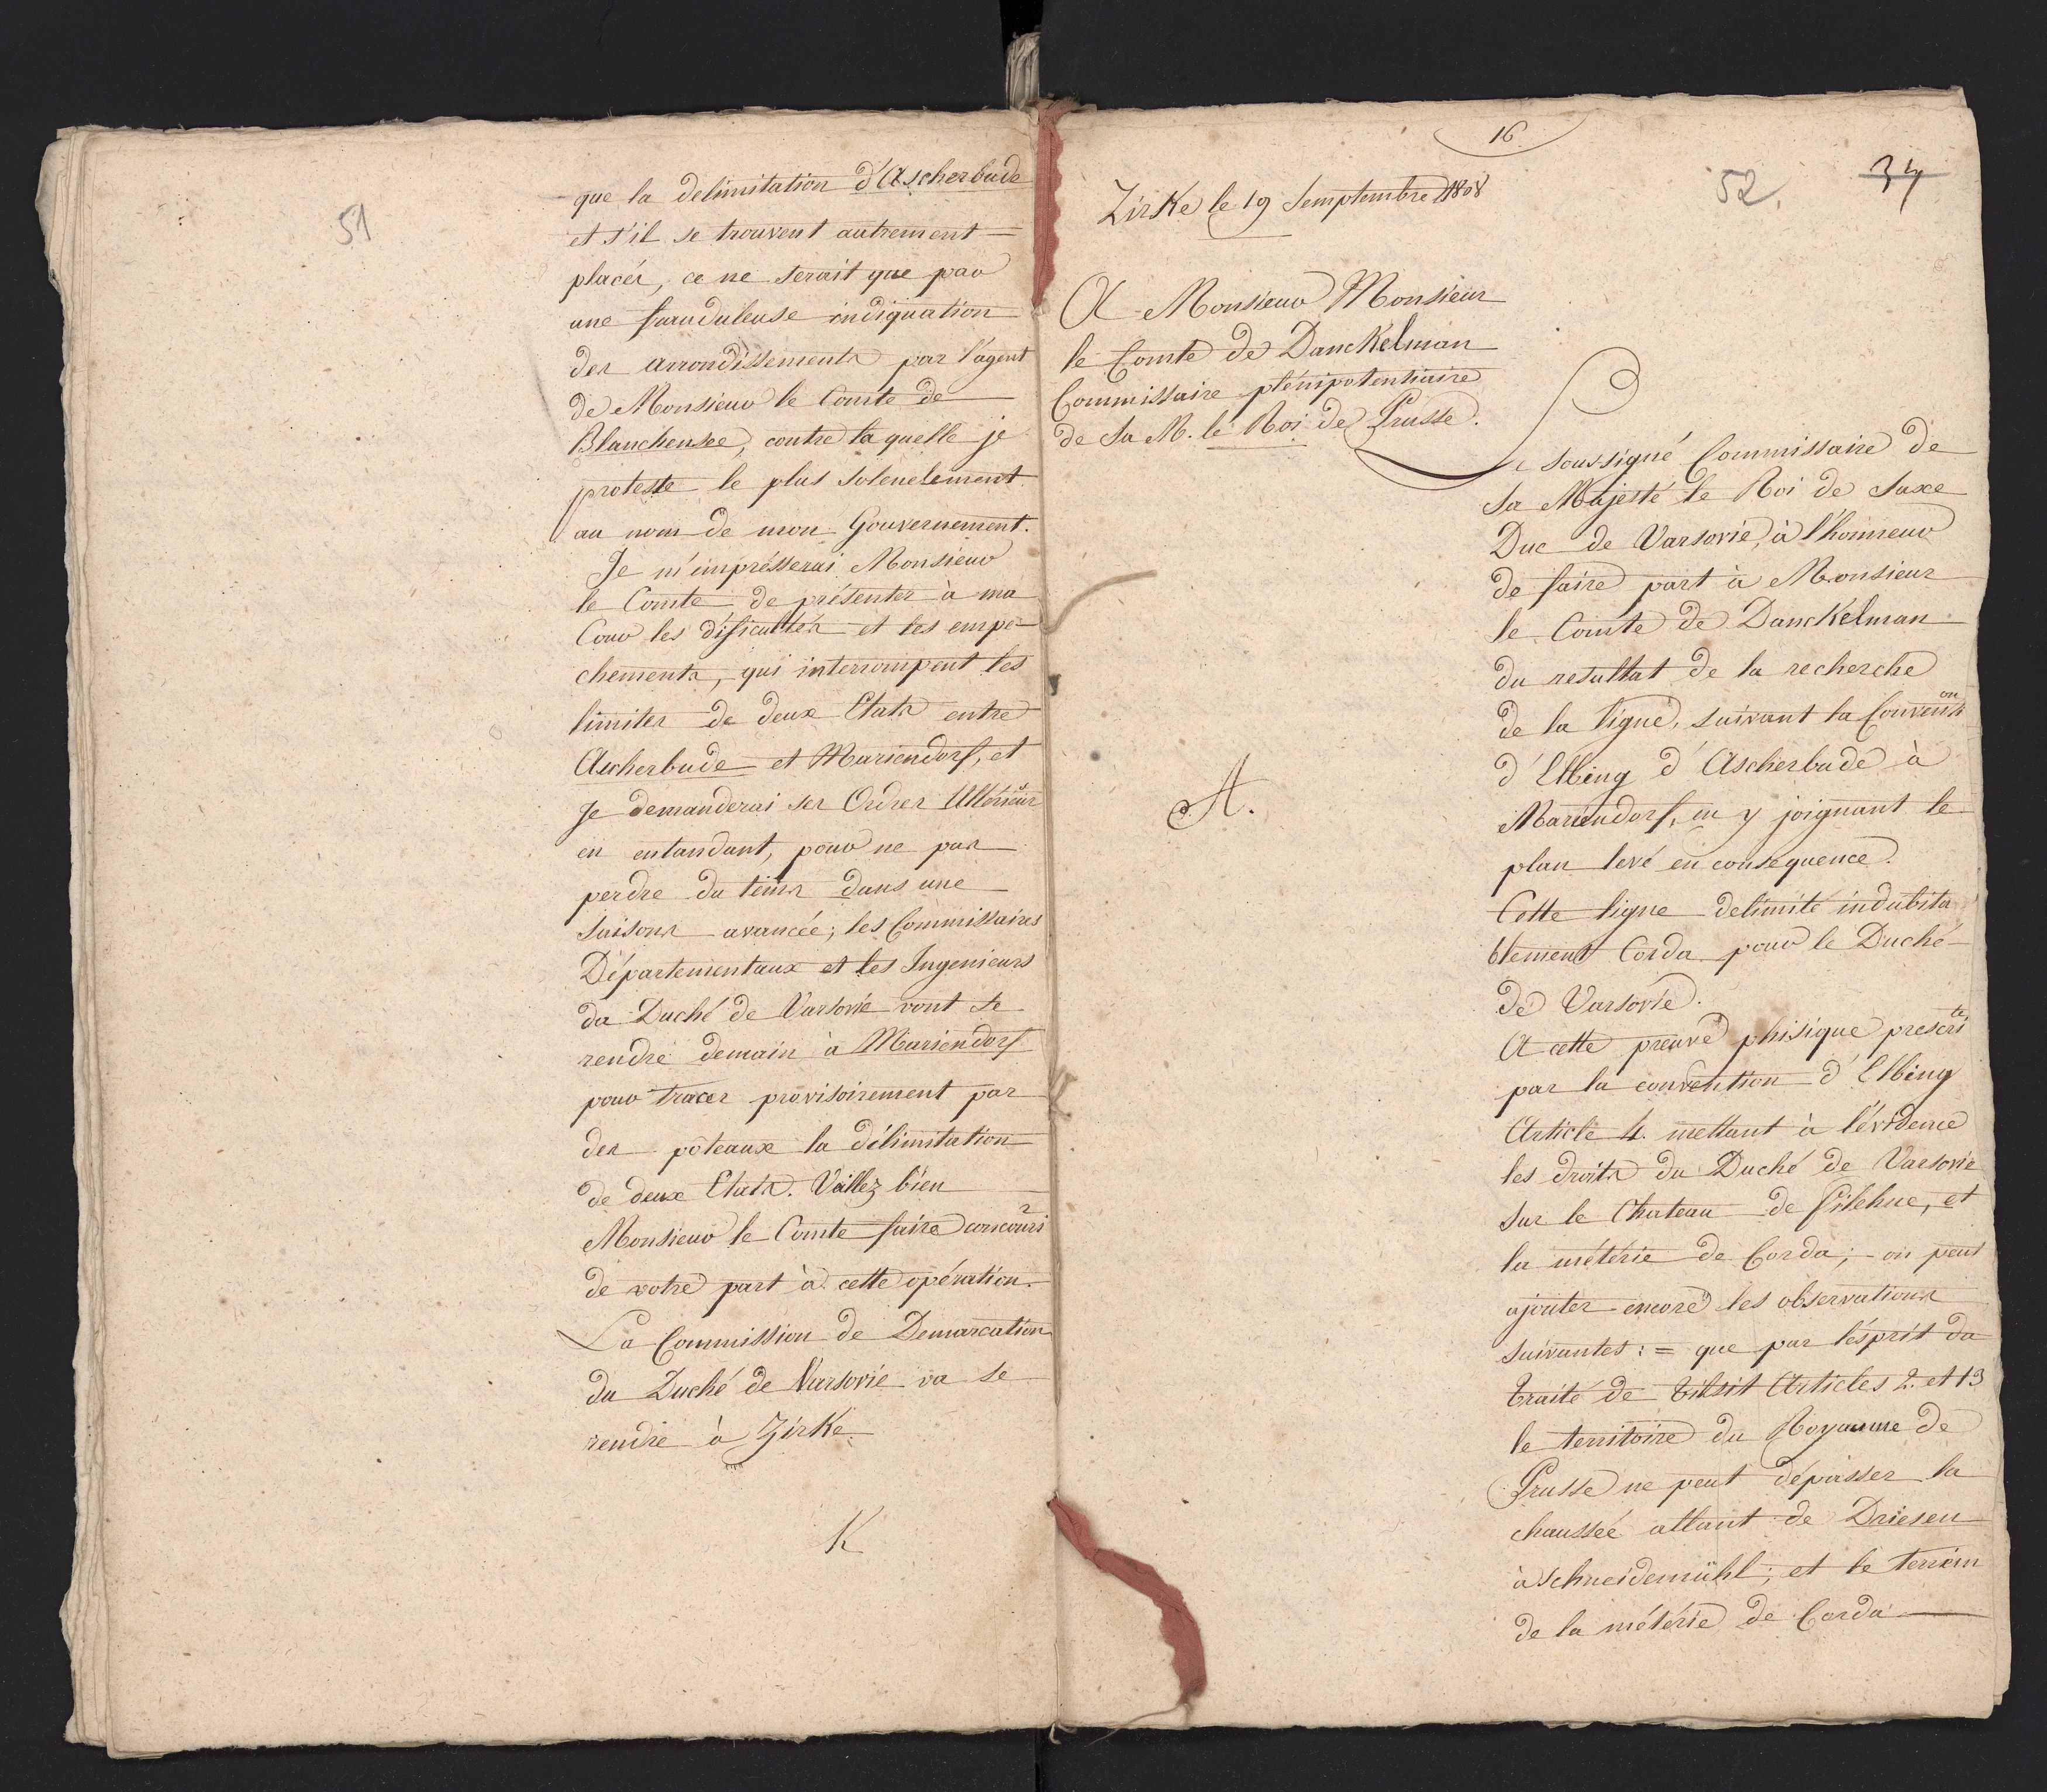 51
que la delimitation d'Ascherbude
et s'il se trouvent autrement
placés, ce ne serait que par
une frauduleuse indiquation
des arrondissements par l'agent
de Monsieur le Comte de
Blanchensee, contre laquelle je
proteste le plus solenelement
au nom de mon Gouvernement.
Je m'impresserai Monsieur
le Comte de présenter à ma
Cour les dificultés et les empe-
chements, qui interrompent les
limites de deux Etats entre
Ascherbude et Mariendorf, et
Je demanderai ses Ordres Ultérieurs
en entandant, pour ne pas
perdre du tems dans une
saisons avancée; les Commissaires
Départementaux et les Ingenieurs
du Duché de Varsovie vont se
rendre demain à Mariendorf
pour tracer provisoirement par
des poteaux la délimitation
de deux Etats. Vaillez bien
Monsieur le Comte faire concourir
de votre part à cette opération.
La Commission de Demarcation
du Duché de Varsovie va se
rendre à Zirke.
K
16.
52
34
Zirke le 19 Semptembre 1808
A Monsieur Monsieur
le Comte de Danckelman
Commissaire plénipotentiaire
de Sa M. le Roi de Prusse.
Le soussigné Commissaire de
Sa Majesté le Roi de Saxe
Duc de Varsovie, à l'honneur
de faire part à Monsieur
le Comte de Danckelman
du resultat de la recherche
de la ligne, suivant la Convention
d'Elbing d'Ascherbude à
A.
Mariendorf, en y joignant le
plan levé en consequence.
Cette ligne delimité indubita
blement Corda pour le Duché
de Varsovie.
A cette preuve phisique prescrite
par la convention d'Elbing
Article 4. mettant à l'évidence
les droits du Duché de Varsovie
sur le Chateau de Filehne, et
la métérie de Corda; on peut
ajouter encore les observations
suivantes: = que par l'ésprit du
traité de Tilsit Articles 2. et 13
le territoire du Royaume de
Prusse ne peut dépasser la
chaussée allant de Driesen
à Schneidemühl; et le terrein
de la métérie de Corda